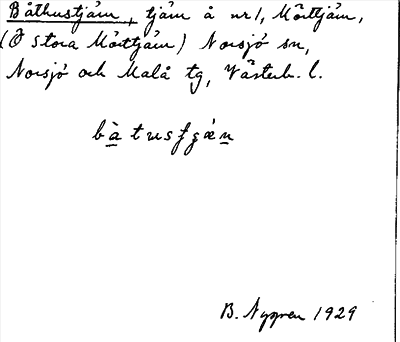 Båthustjärn, tjärn å nr 1, Mörttjärn,
(Ö Stora Mörttjärn) Norsjö sn,
Norsjö och Malå tg, Västerb. l.
bàtusʃgæ̀n
B. Nygren 1929